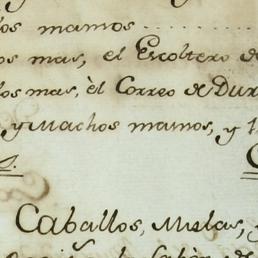 los mamos
os mas, el Escoltero de
los mas, èl Correo de Dur
y Machos mamos, y 1
s.
Caballos, Mulas, y